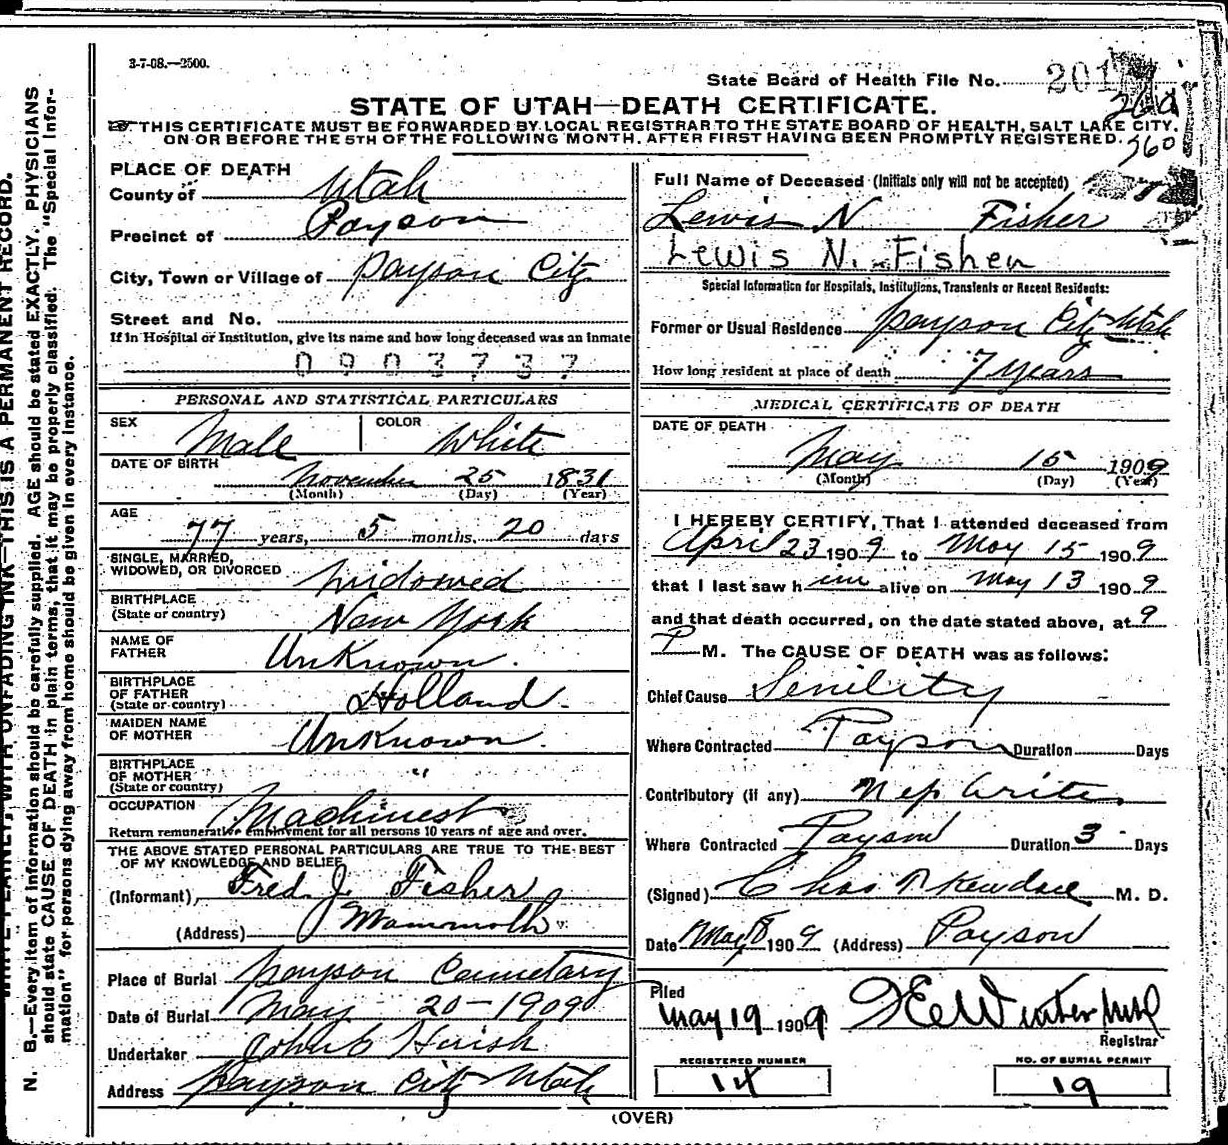 3-7-08.—2500.
State Board of Health File No. 201
260
STATE OF UTAH—DEATH CERTIFICATE.
☞THIS CERTIFICATE MUST BE FORWARDED BY LOCAL REGISTRAR TO THE STATE BOARD OF HEALTH, SALT LAKE CITY,
ON OR BEFORE THE 5TH OF THE FOLLOWING MONTH, AFTER FIRST HAVING BEEN PROMPTLY REGISTERED.
360
PLACE OF DEATH
County of Utah
Precinct of Payson
City, Town or Village of Payson City
Street and No.
If in Hospital or Institution, give its name and how long deceased was an inmate
0903737
PERSONAL AND STATISTICAL PARTICULARS
SEX Male COLOR White
DATE OF BIRTH November 25 1831
(Month) (Day) (Year)
AGE 77 years, 5 months, 20 days
SINGLE, MARRIED,
WIDOWED, OR DIVORCED widowed
BIRTHPLACE
(State or country) New York
NAME OF
FATHER UnKnown.
BIRTHPLACE
OF FATHER
(State or country) Holland.
MAIDEN NAME
OF MOTHER UnKnown.
BIRTHPLACE
OF MOTHER "
(State or country)
OCCUPATION Machinest
Return remunerative employment for all persons 10 years of age and over.
THE ABOVE STATED PERSONAL PARTICULARS ARE TRUE TO THE BEST
OF MY KNOWLEDGE AND BELIEF
(Informant) Fred J. Fisher
(Address) Mammoth
Place of Burial Payson Cemetary
Date of Burial May 20-1909
Undertaker
Address Payson City Utah
Full Name of Deceased (Initials only will not be accepted)
Lewis N Fisher
Lewis N. Fisher
Special Information for Hospitals, Institutions, Transients or Recent Residents:
Former or Usual Residence Payson City Utah
How long resident at place of death 7 years
MEDICAL CERTIFICATE OF DEATH
DATE OF DEATH
May 15 1909
(Month) (Day) (Year)
I HEREBY CERTIFY, That I attended deceased from
April 23 1909 to May 15 1909
that I last saw h im alive on May 13 1909
and that death occurred, on the date stated above, at 9
P M. The CAUSE OF DEATH was as follows:
Chief Cause Senility
Where Contracted Payson Duration Days
Contributory (if any)
Where Contracted Payson Duration 3 Days
(Signed) Chas M. D.
Date May 1909 (Address) Payson
Filed
May 19 1909
Registrar
REGISTERED NUMBER
14
NO. OF BURIAL PERMIT
19
(OVER)
WRITE PLAINLY, WITH UNFADING INK—THIS IS A PERMANENT RECORD.
N. B.—Every item of information should be carefully supplied. AGE should be stated EXACTLY. PHYSICIANS
should state CAUSE OF DEATH in plain terms, that it may be properly classified. The "Special Infor-
mation" for persons dying away from home should be given in every instance.